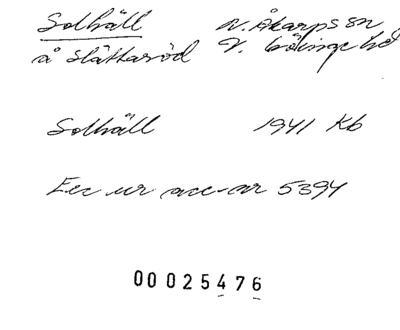 Solhäll N. Åkarps sn
å Slättaröd V. Göinge hd
Solhäll 1941 Kb
Exc ur acc-nr 5394
00025476